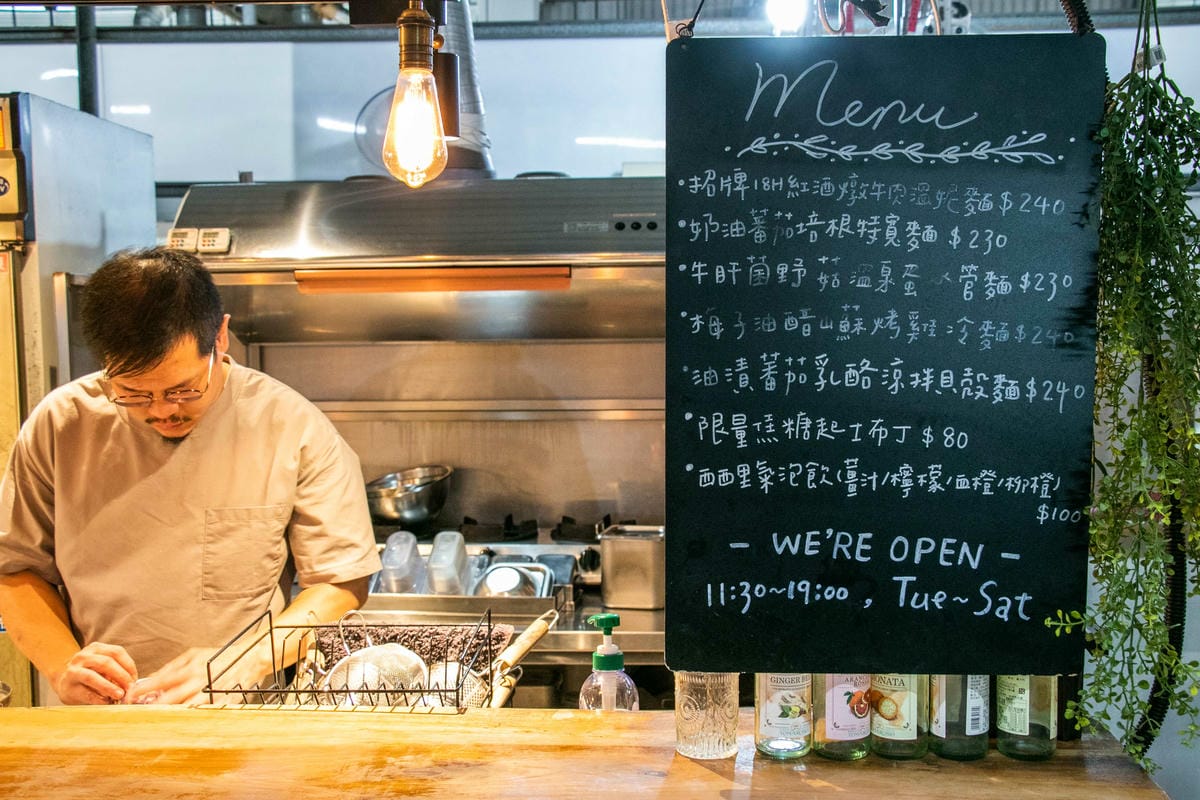 Menu
•招牌18H紅酒燉牛肉溫妮麵$240
•奶油蕃茄培根特寬麵 $230
•牛肝菌野菇溫泉蛋 管麵$230
•梅子油醋山蘇烤雞冷麵$240
•油漬蕃茄乳酪涼拌貝殼麵$240
•限量焦糖起士布丁 $80
•西西里氣泡飲(薑汁/檸檬/血橙/柳橙)
$100
- WE'RE OPEN -
11:30~19:00 , Tue~Sat
GINGER BEER